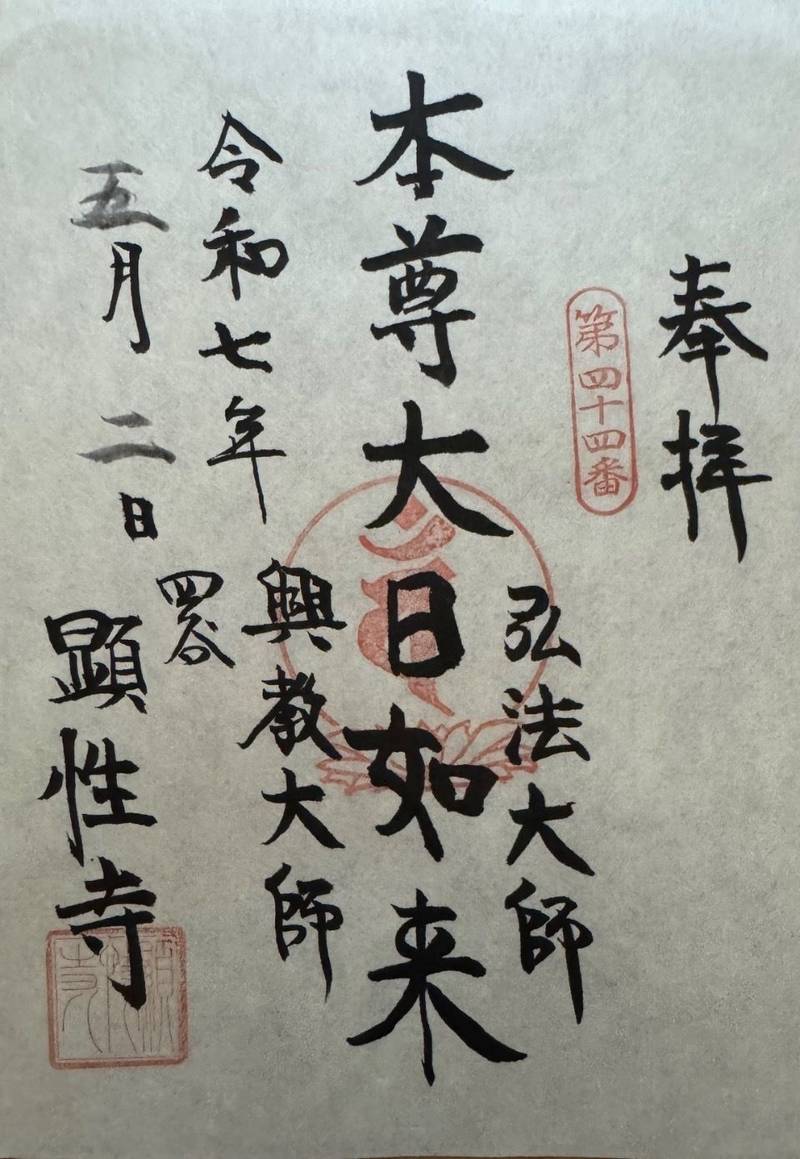 奉拝
第四十四番
弘法大師
本尊大日如来
興教大師
令和七年
五月二日
四谷
顕性寺